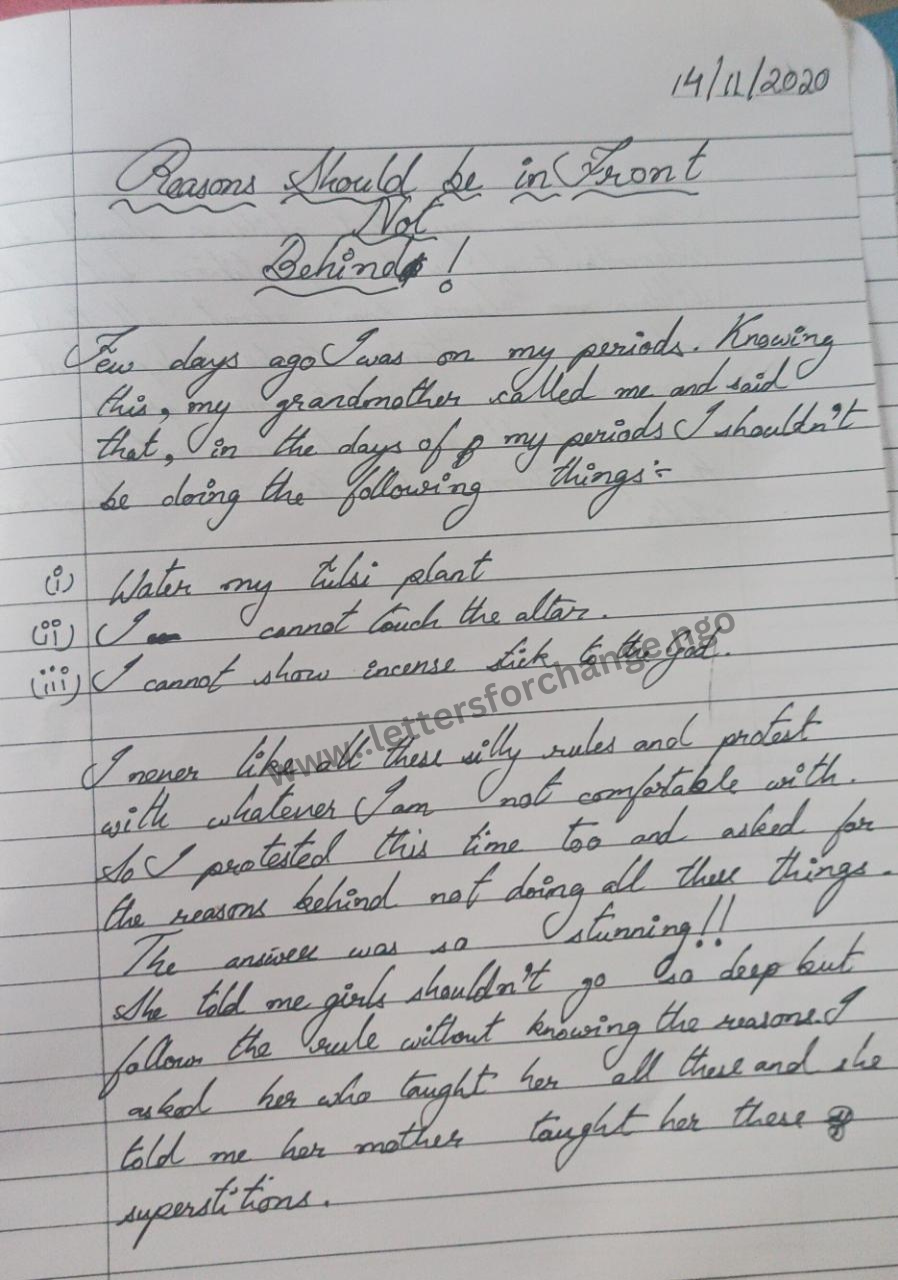 14/11/2020
Reasons Should be in Front
Not
Behind !
Few days ago I was on my periods. Knowing
this, my grandmother called me and said
that, in the days of my periods I shouldn't
be doing the following things:-
(i) Water my tulsi plant
(ii) I cannot touch the altar.
(iii) I cannot show incense stick to the God.
www.lettersforchange.ngo
I never like all these silly rules and protest
with whatever I am not comfortable with.
So I protested this time too and asked for
the reasons behind not doing all these things.
The answer was so stunning!!
She told me girls shouldn't go so deep but
follow the rule without knowing the reasons. I
asked her who taught her all these and she
told me her mother taught her these
superstitions.